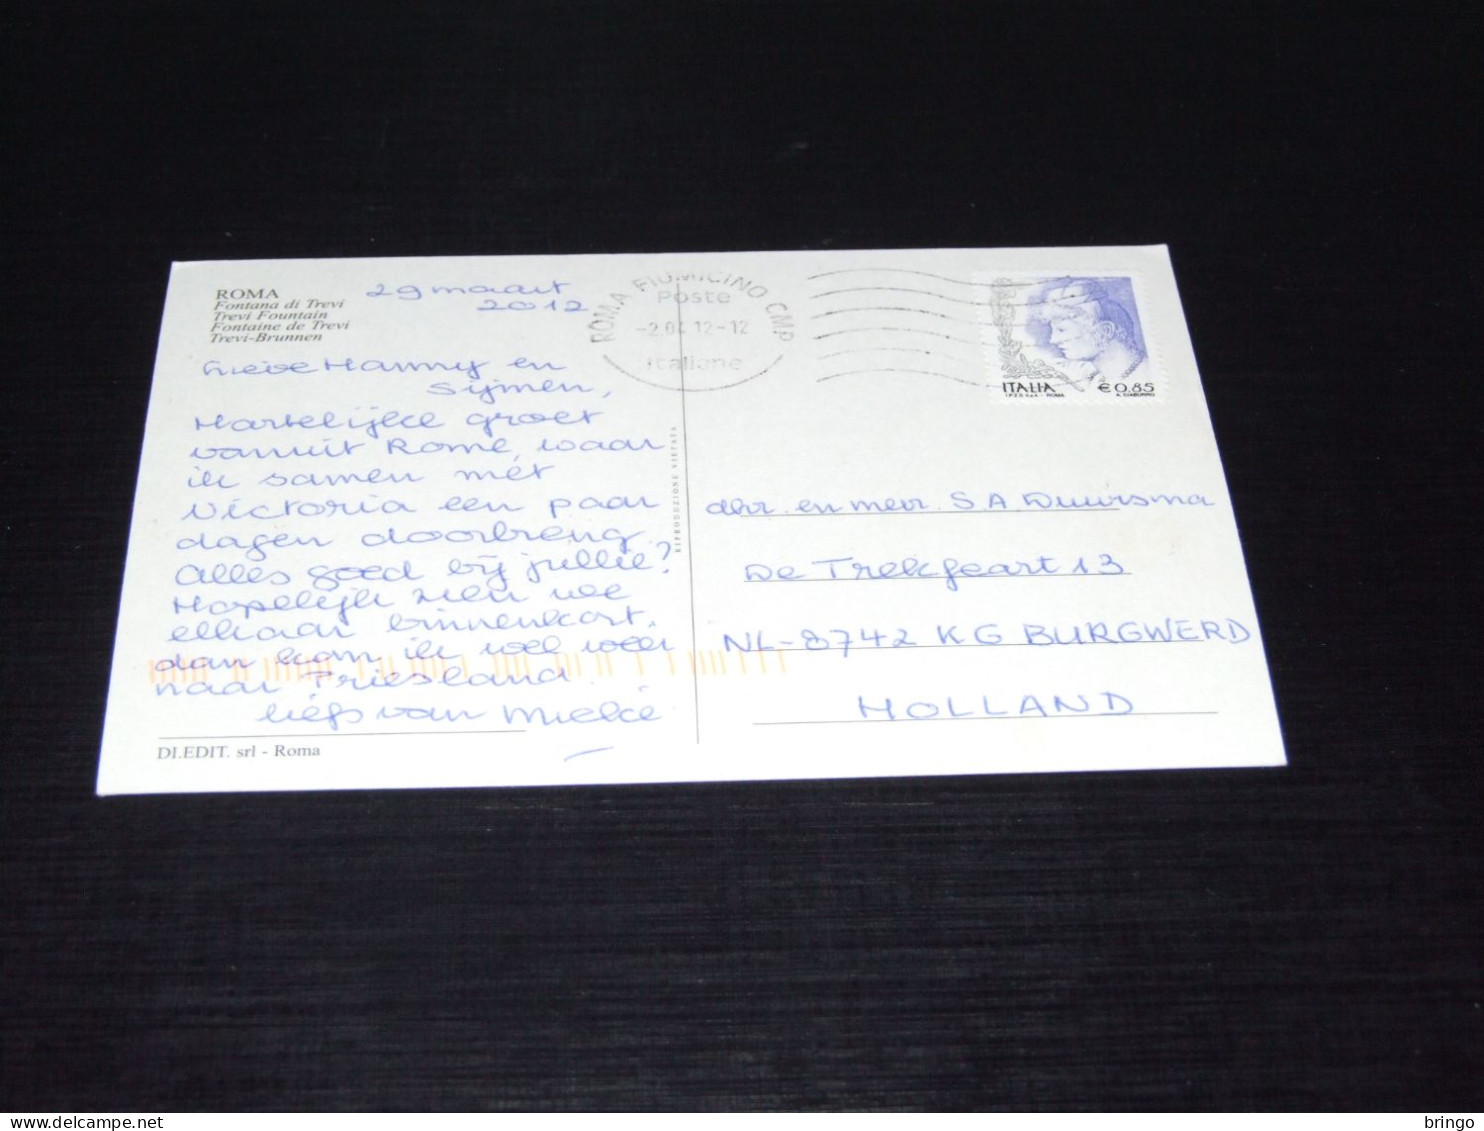 ROMA
Fontana di Trevi
Trevi Fountain
Fontaine de Trevi
Trevi-Brunnen
29 maart
2012
Lieve Hanny en
Sijmen,
Hartelijke groet
vanuit Rome, waar
ik samen met
Victoria een paar
dagen doorbreng.
Alles goed bij jullie?
Hopelijk zien we
elkaar binnenkort,
dan kom ik wel weer
naar Friesland.
liefs van Mieke
DI.EDIT. srl - Roma
RIPRODUZIONE VIETATA
ROMA FIUMICINO CMP
Poste
-2.04.12-12
Italiane
ITALIA
€0,85
I.P.Z.S. S.p.A. - ROMA
A. CIABURRO
dhr. en mevr. S.A. Duursma
De Trekfeart 13
NL-8742 KG BURGWERD
HOLLAND
bringo